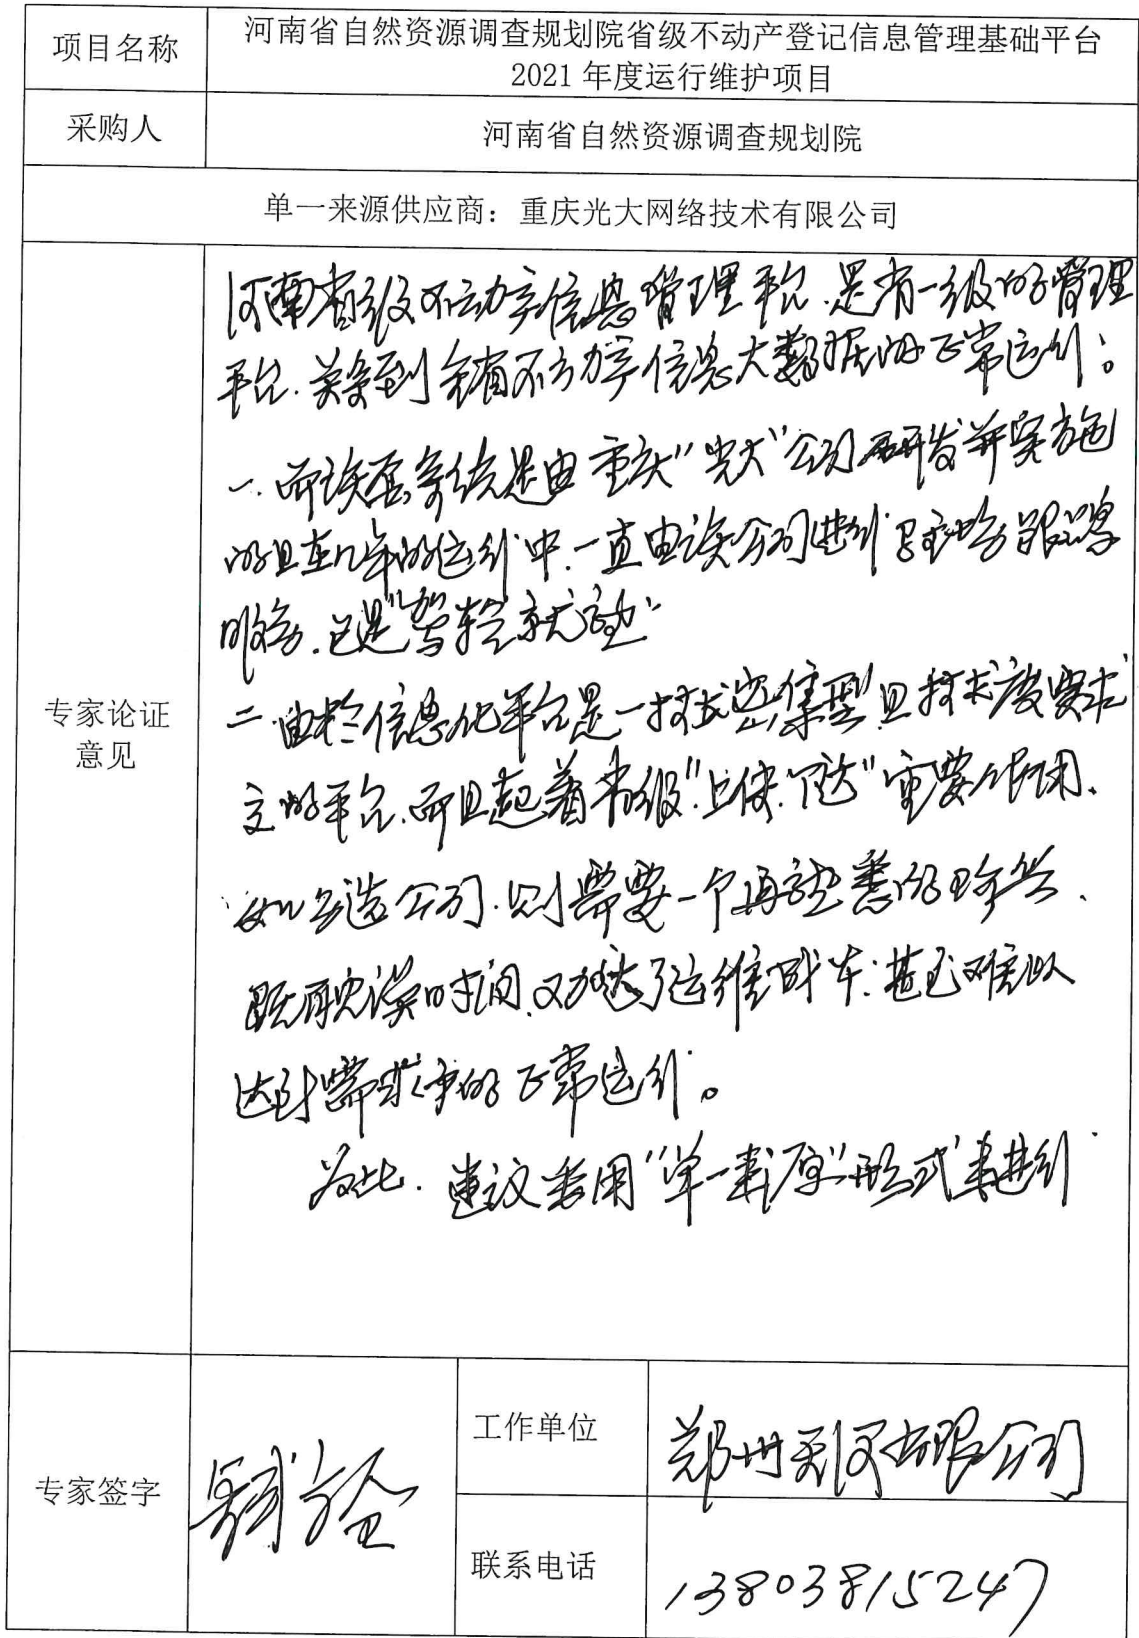 项目名称
河南省自然资源调查规划院省级不动产登记信息管理基础平台
2021 年度运行维护项目
采购人
河南省自然资源调查规划院
单一来源供应商：重庆光大网络技术有限公司
专家论证
意见
河南省级不动产信息管理平台.是省一级的管理
平台.关系到全省不动产信息大数据的正常运行；
一.而该套系统是由重庆"光大"公司研发并实施
的且在几年的运行中.一直由该公司进行跟踪
服务.已是"驾轻就熟"
二 由于信息化平台是一技术密集型且技术度要求
高的平台.而且起着省级"上传.下达"重要作用.
如另选公司.则需要一个再熟悉的阶段.
既耽误时间.又加大了运维成本；甚至难以
达到需求的正常运行。
为此.建议采用"单一来源"形式来进行
专家签字
工作单位
郑州天河有限公司
联系电话
13803815247